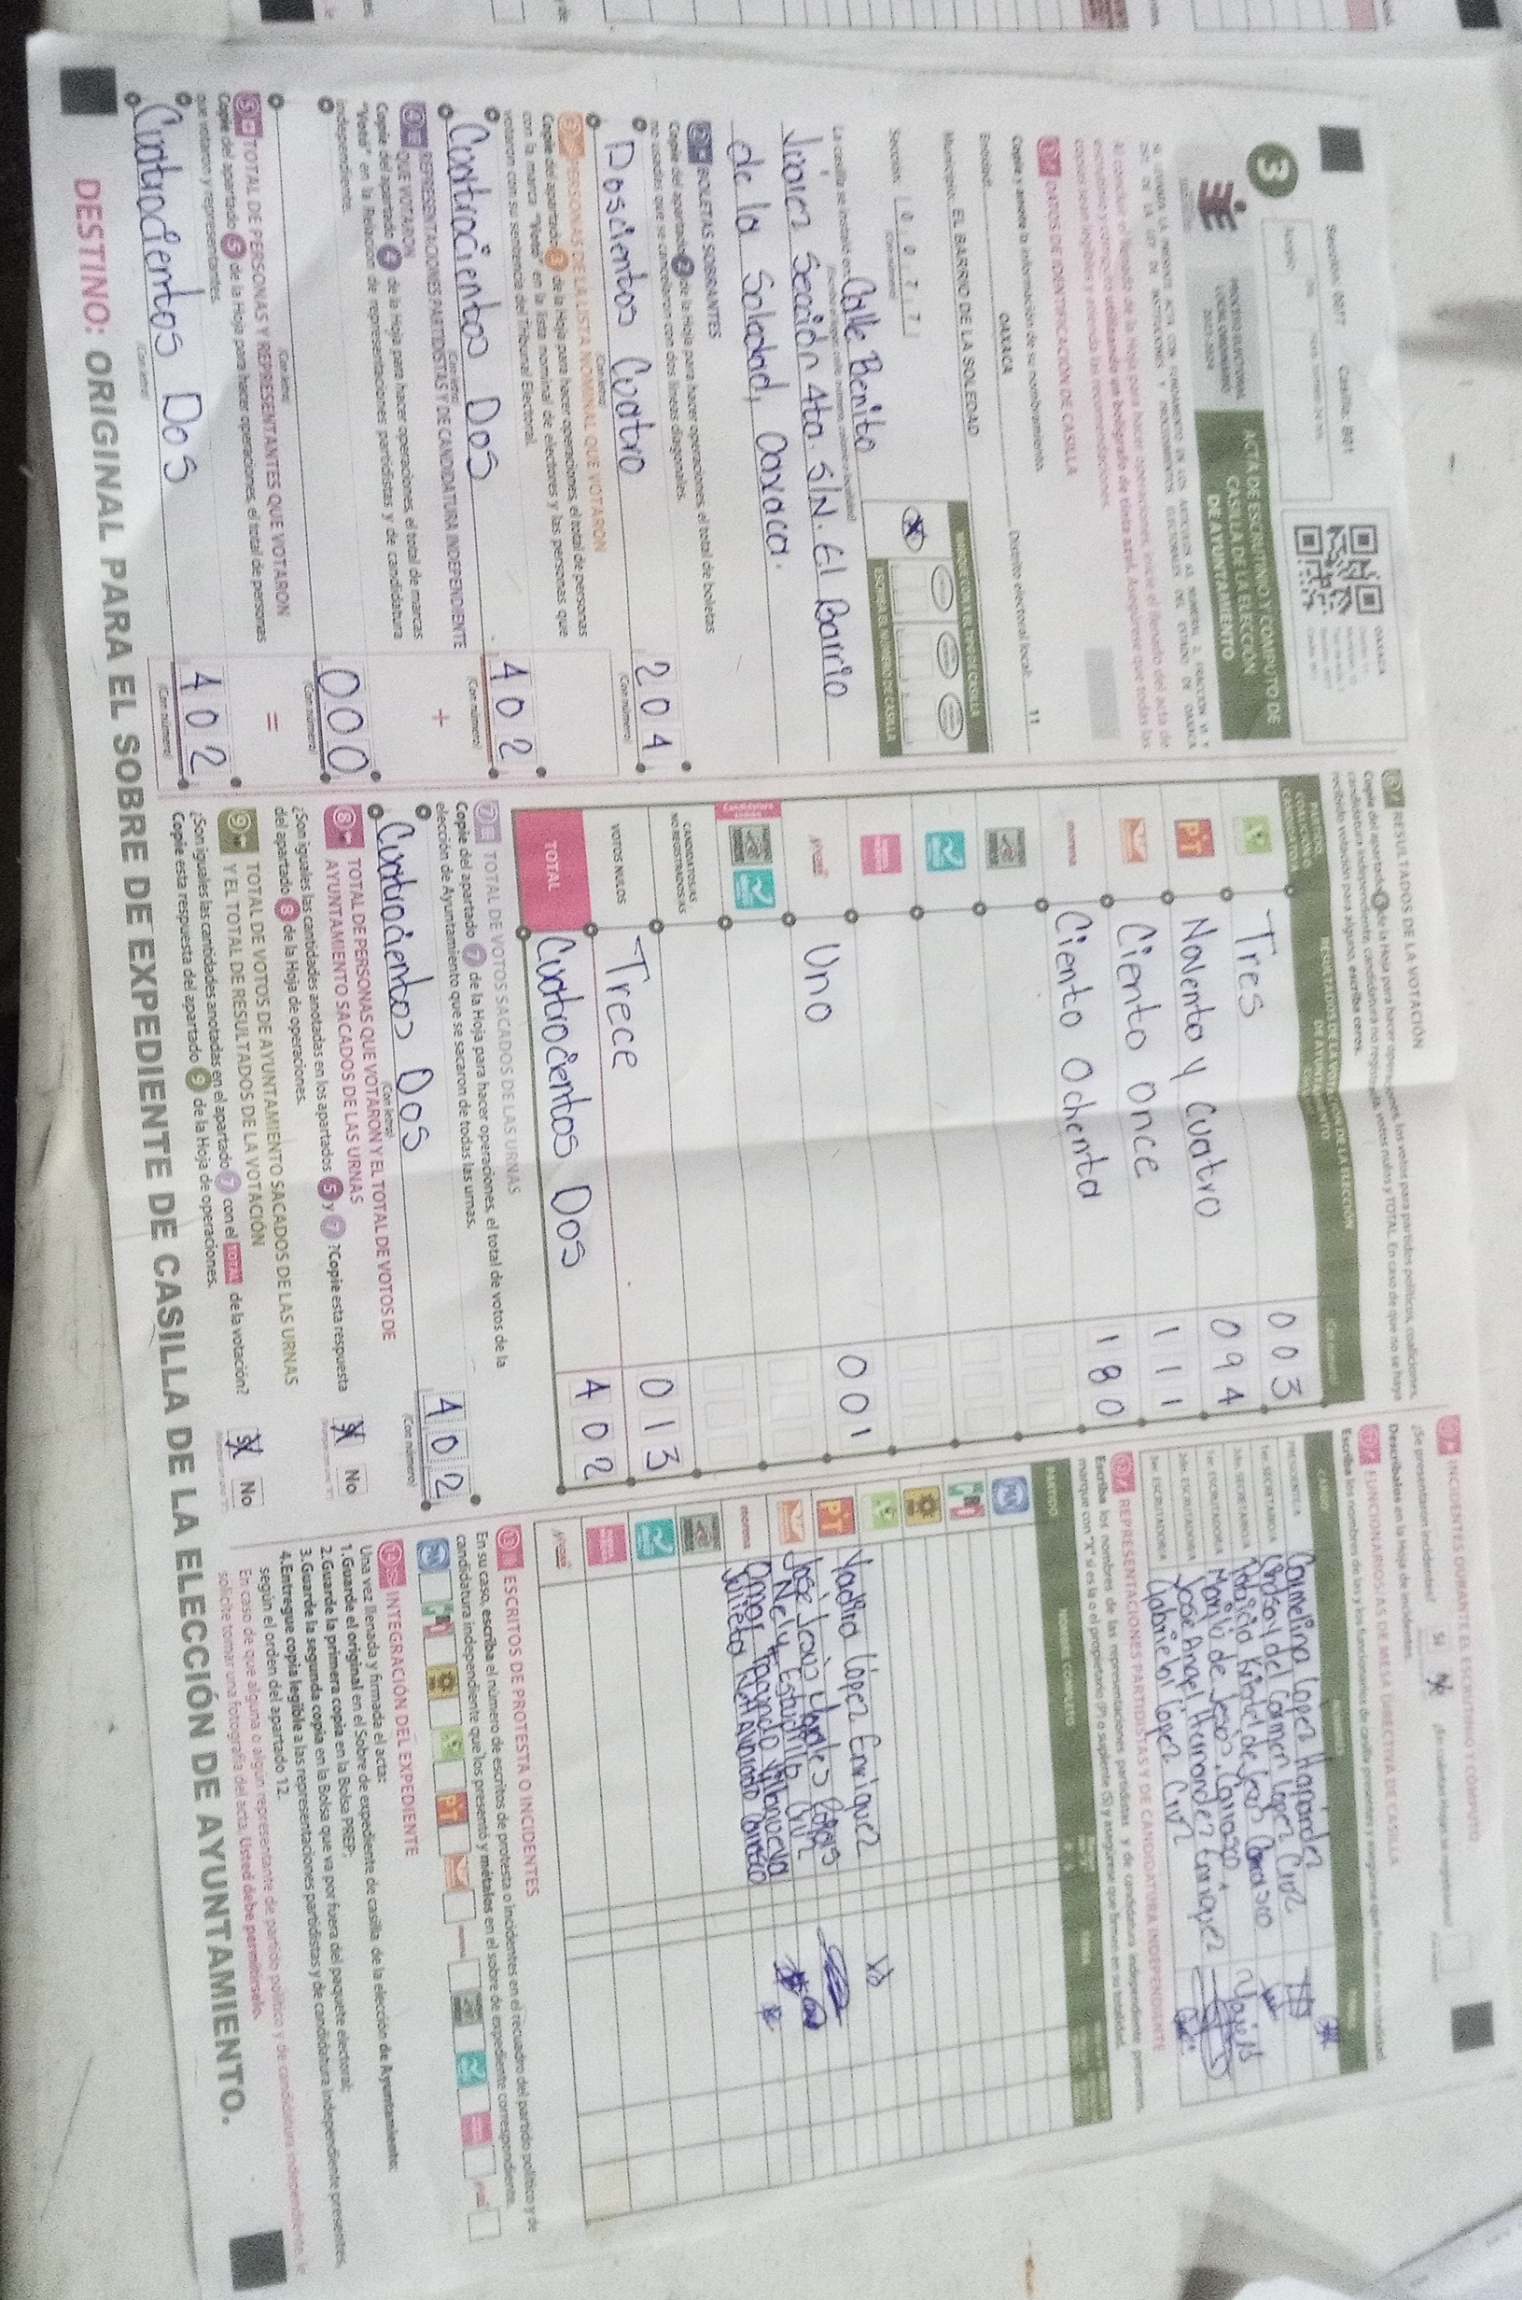 Sección: 0077 Casilla: B01
OAXACA
3
PROCESO ELECTORAL
LOCAL ORDINARIO
2023-2024
ACTA DE ESCRUTINIO Y CÓMPUTO DE
CASILLA DE LA ELECCIÓN
DE AYUNTAMIENTO
Al concluir el llenado de la Hoja para hacer operaciones, inicie el llenado del acta de
escrutinio y cómputo utilizando un bolígrafo de tinta azul. Asegúrese que todas las
copias sean legibles y atienda las recomendaciones.
1 DATOS DE IDENTIFICACIÓN DE CASILLA
Copie y anote la información de su nombramiento.
Entidad: OAXACA Distrito electoral local: 11
Municipio: EL BARRIO DE LA SOLEDAD
MARQUE CON X EL TIPO DE CASILLA
Sección: 0 0 7 7
(Con número)
ESCRIBA EL NÚMERO DE CASILLA
La casilla se instaló en: Calle Benito
Juárez Sección 4ta. S/N. El Barrio
de la Soledad, Oaxaca.
2 BOLETAS SOBRANTES
Copie del apartado 2 de la Hoja para hacer operaciones, el total de boletas
no usadas que se cancelaron con dos líneas diagonales.
Doscientos Cuatro 204
(Con letra) (Con número)
3 PERSONAS DE LA LISTA NOMINAL QUE VOTARON
Copie del apartado 3 de la Hoja para hacer operaciones, el total de personas
con la marca "Votó" en la lista nominal de electores y las personas que
votaron con su sentencia del Tribunal Electoral.
Cuatrocientos Dos 402
(Con letra) (Con número)
4 REPRESENTACIONES PARTIDISTAS Y DE CANDIDATURA INDEPENDIENTE
QUE VOTARON
+
Copie del apartado 4 de la Hoja para hacer operaciones, el total de marcas
"Votó" en la Relación de representaciones partidistas y de candidatura
independiente.
000
(Con letra) (Con número)
5 TOTAL DE PERSONAS Y REPRESENTANTES QUE VOTARON
=
Copie del apartado 5 de la Hoja para hacer operaciones, el total de personas
que votaron y representantes.
Cuatrocientos Dos 402
(Con letra) (Con número)
6 RESULTADOS DE LA VOTACIÓN
Copie del apartado 6 de la Hoja para hacer operaciones, los votos para partidos políticos, coaliciones,
candidatura independiente, candidatura no registrada, votos nulos y TOTAL. En caso de que no se haya
recibido votación para alguno, escriba ceros.
RESULTADOS DE LA VOTACIÓN DE LA ELECCIÓN
DE AYUNTAMIENTO
Tres 003
PT Noventa y cuatro 094
Ciento once 111
morena Ciento Ochenta 180
Uno 001
CANDIDATOS/AS
NO REGISTRADOS/AS
VOTOS NULOS Trece 013
TOTAL Cuatrocientos Dos 402
7 TOTAL DE VOTOS SACADOS DE LAS URNAS
Copie del apartado 7 de la Hoja para hacer operaciones, el total de votos de la
elección de Ayuntamiento que se sacaron de todas las urnas.
Cuatrocientos Dos 402
(Con letra) (Con número)
8 TOTAL DE PERSONAS QUE VOTARON Y EL TOTAL DE VOTOS DE
AYUNTAMIENTO SACADOS DE LAS URNAS
¿Son iguales las cantidades anotadas en los apartados 5 y 7 ?Copie esta respuesta
del apartado 8 de la Hoja de operaciones.
Sí No
9 TOTAL DE VOTOS DE AYUNTAMIENTO SACADOS DE LAS URNAS
Y EL TOTAL DE RESULTADOS DE LA VOTACIÓN
¿Son iguales las cantidades anotadas en el apartado 7 con el TOTAL de la votación?
Copie esta respuesta del apartado 9 de la Hoja de operaciones.
Sí No
10 INCIDENTES DURANTE EL ESCRUTINIO Y CÓMPUTO
¿Se presentaron incidentes? Sí No
Descríbalos en la Hoja de incidentes.
11 FUNCIONARIOS/AS DE MESA DIRECTIVA DE CASILLA
Escriba los nombres de las y los funcionarios de casilla presentes y asegúrese que firmen en su totalidad.
PRESIDENTE/A Carmelina López Hernández
1er. SECRETARIO/A Lindsay del Carmen López Cruz
2do. SECRETARIO/A
1er. ESCRUTADOR/A María de Jesús Carrasco
2do. ESCRUTADOR/A José Angel Hernández Enríquez
3er. ESCRUTADOR/A Gabriela López Cruz
12 REPRESENTACIONES PARTIDISTAS Y DE CANDIDATURA INDEPENDIENTE
Escriba los nombres de las representaciones partidistas y de candidatura independiente presentes,
marque con "X" si es la o el propietario (P) o suplente (S) y asegúrese que firmen en su totalidad.
PARTIDO NOMBRE COMPLETO
PAN
PRI
PRD
Yadira López Enríquez
PT
morena
13 ESCRITOS DE PROTESTA O INCIDENTES
En su caso, escriba el número de escritos de protesta o incidentes en el recuadro del partido político y de
candidatura independiente que los presentó y métalos en el sobre de expediente correspondiente.
14 INTEGRACIÓN DEL EXPEDIENTE
Una vez llenada y firmada el acta:
1.Guarde el original en el Sobre de expediente de casilla de la elección de Ayuntamiento;
2.Guarde la primera copia en la Bolsa PREP;
3.Guarde la segunda copia en la Bolsa que va por fuera del paquete electoral;
4.Entregue copia legible a las representaciones partidistas y de candidatura independiente presentes,
según el orden del apartado 12.
En caso de que alguna o algún representante de partido político y de candidatura independiente, le
solicite tomar una fotografía del acta, Usted debe permitírselo.
DESTINO: ORIGINAL PARA EL SOBRE DE EXPEDIENTE DE CASILLA DE LA ELECCIÓN DE AYUNTAMIENTO.